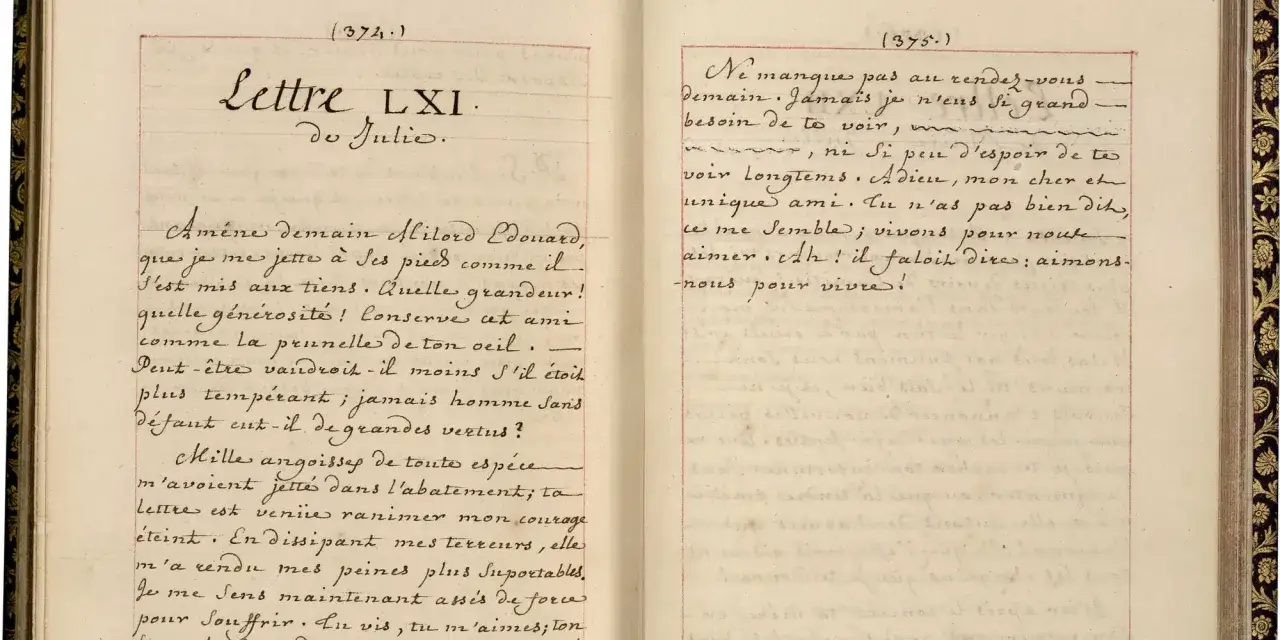 (372.)
Lettre LXI.
de Julie.
Améne demain Milord Edouard,
que je me jette à ses pieds comme il
s'est mis aux tiens. Quelle grandeur!
quelle générosité! Conserve cet ami
comme la prunelle de ton oeil. —
Peut-être vaudroit-il moins s'il étoit
plus tempérant; jamais homme sans
défaut eut-il de grandes vertus?
Mille angoisses de toute espéce
m'avoient jetté dans l'abatement; ta
lettre est venüe ranimer mon courage
éteint. En dissipant mes terreurs, elle
m'a rendu mes peines plus suportables.
Je me sens maintenant assés de force
pour souffrir. Tu vis, tu m'aimes; ton
(375.)
Ne manque pas au rendez-vous —
demain. Jamais je n'eus si grand —
besoin de te voir,
, ni si peu d'espoir de te
voir longtems. Adieu, mon cher et
unique ami. Tu n'as pas bien dit,
ce me semble; vivons pour nous
aimer. Ah! il faloit dire: aimons-
-nous pour vivre!